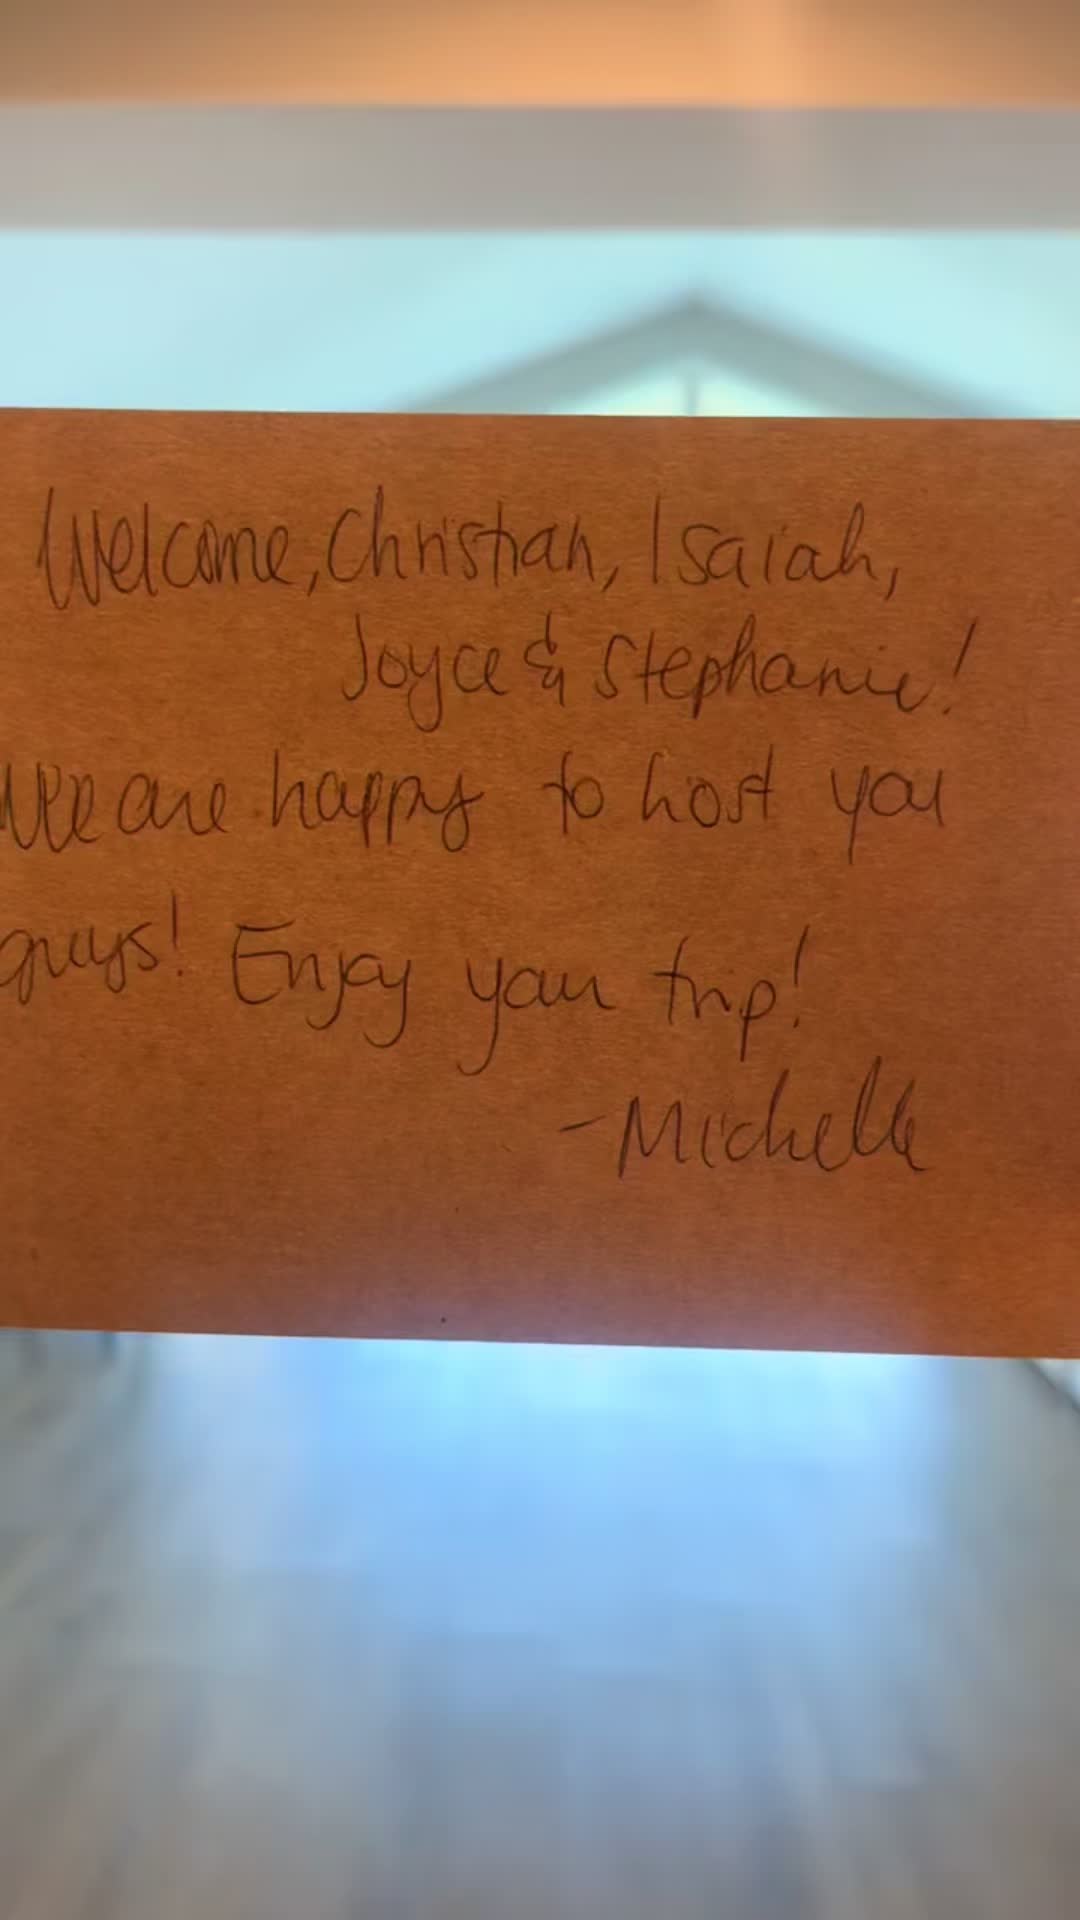 Welcome, Christian, Isaiah,
Joyce & Stephanie!
We are happy to host you
guys! Enjoy your trip!
-Michelle